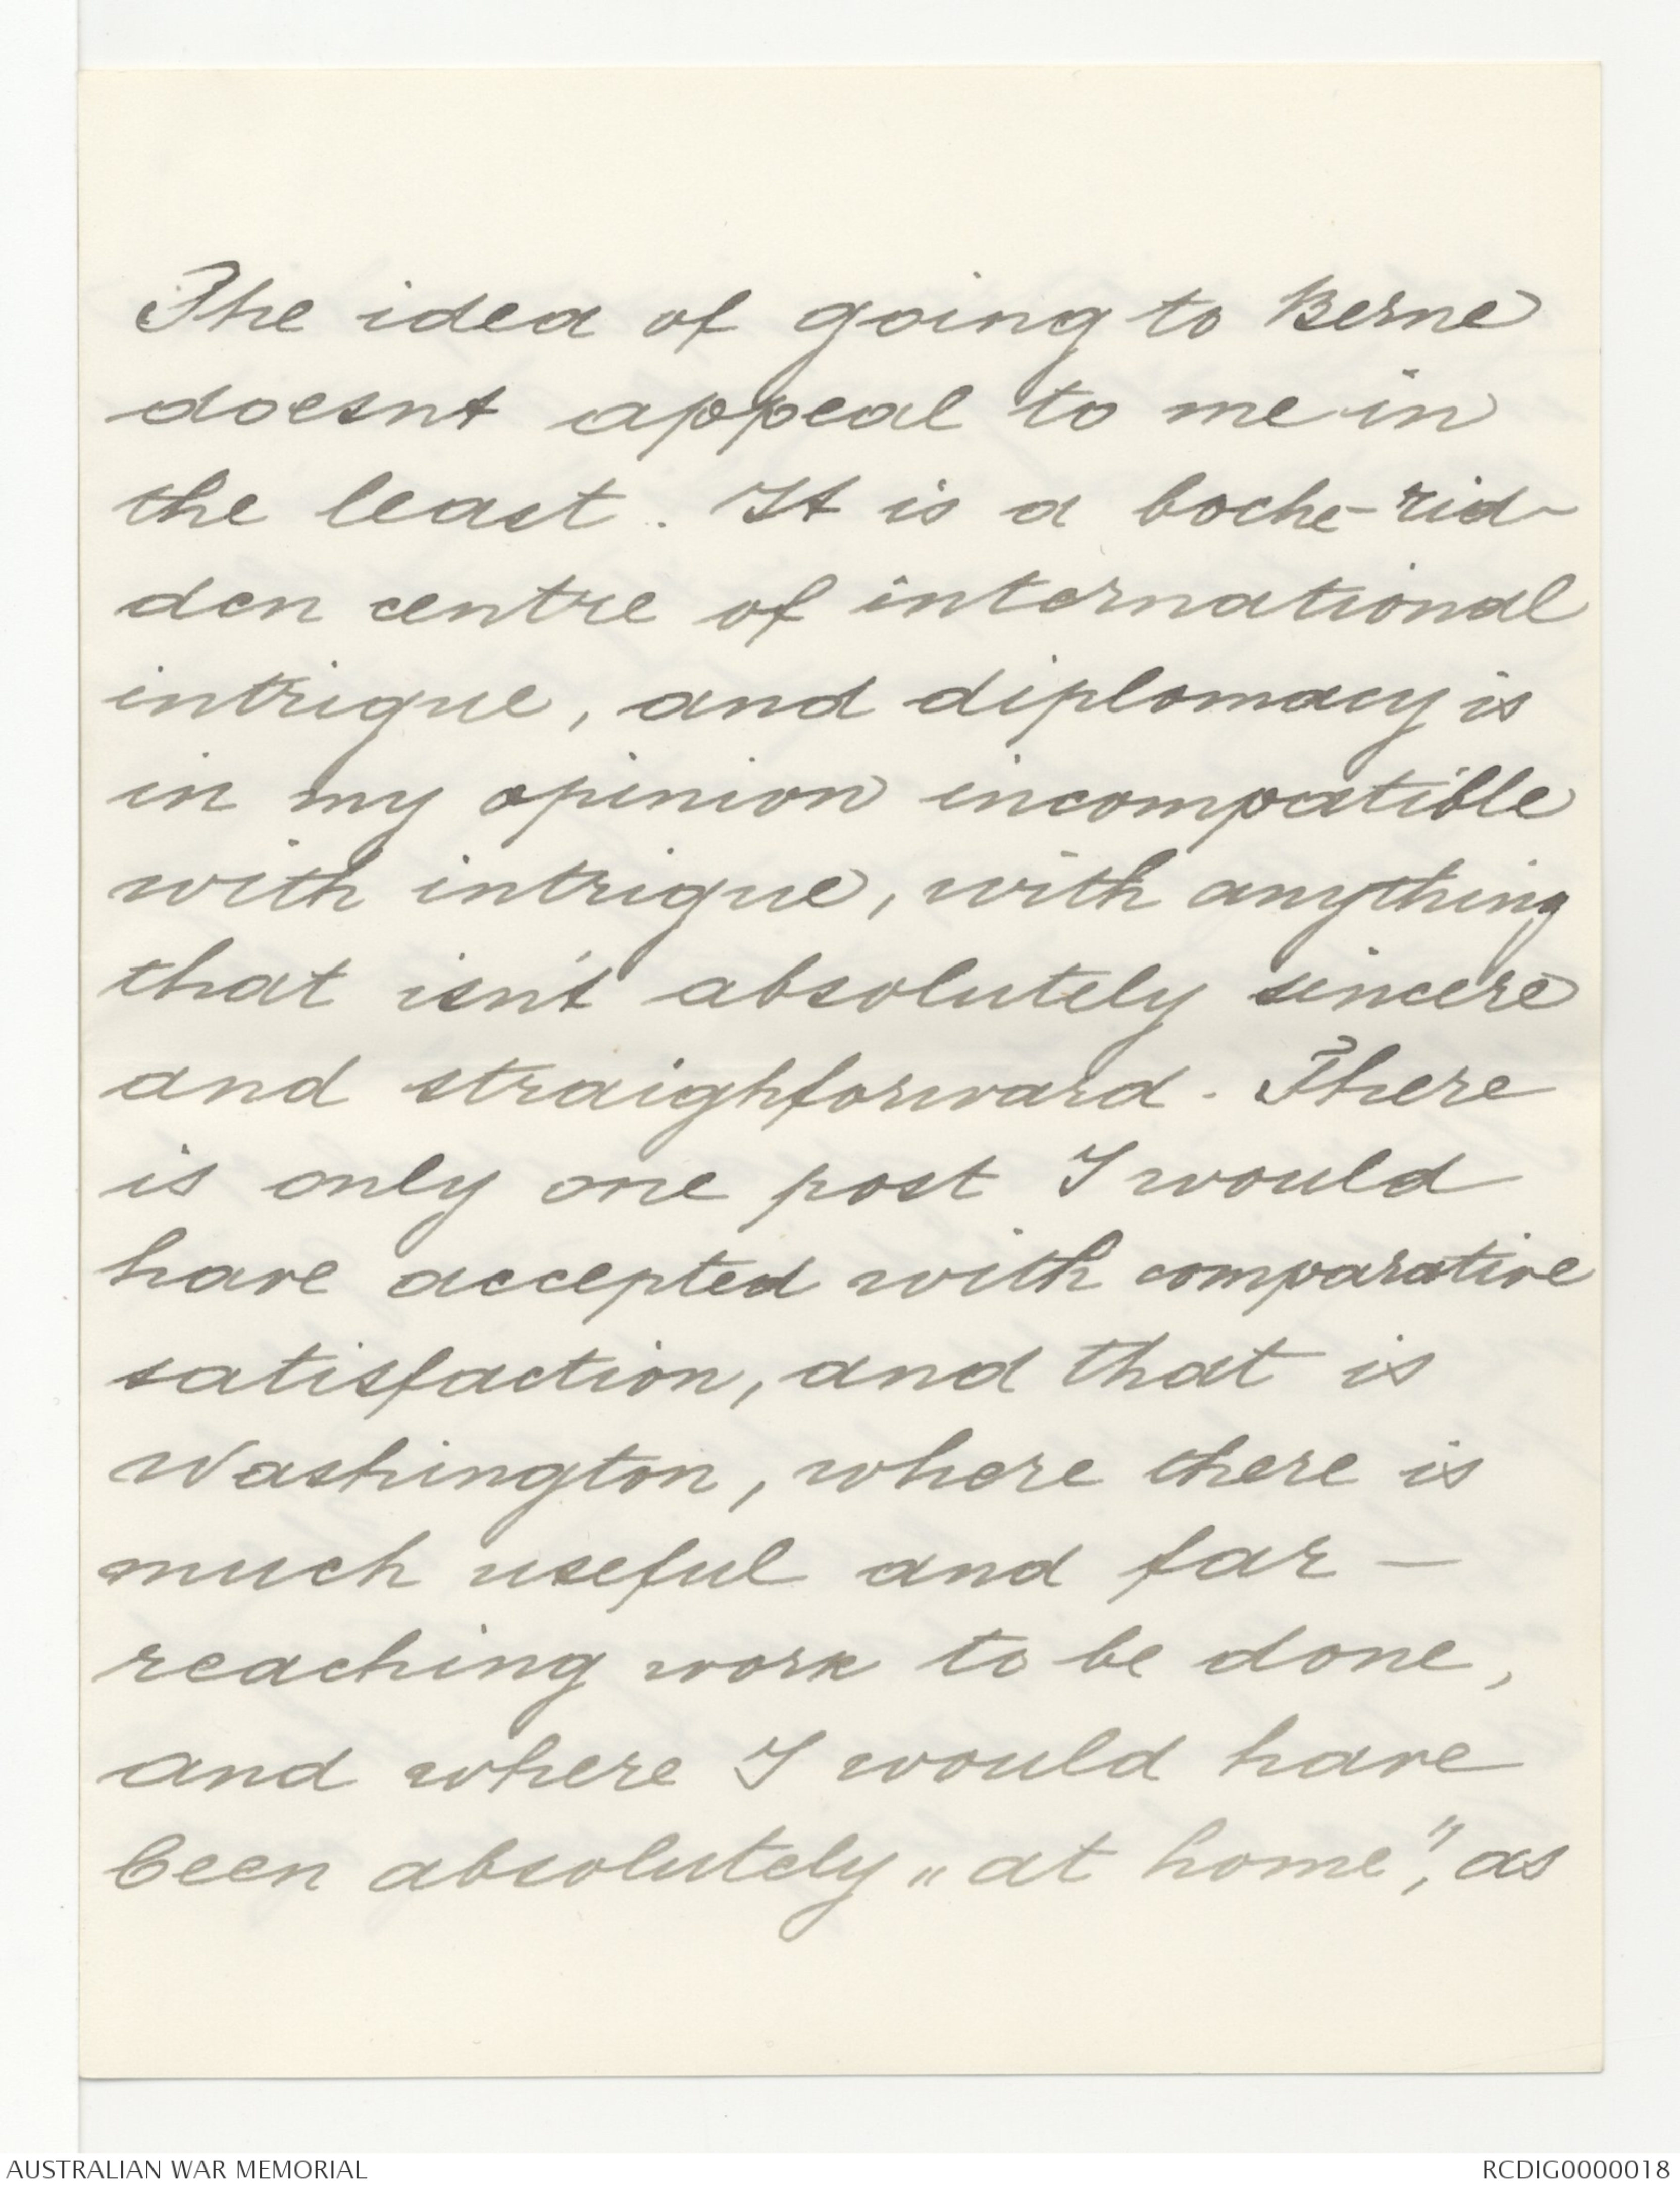 The idea of going to Berne
doesnt appeal to me in
the least. It is a boche-rid-
den centre of international
intrigue, and diplomacy is
in my opinion incompatible
with intrigue, with anything
that isn't absolutely sincere
and straighforward. There
is only one post I would
have accepted with comparative
satisfaction, and that is
Washington, where there is
much useful and far -
reaching work to be done,
and where I would have
been absolutely „at home", as
AUSTRALIAN WAR MEMORIAL
RCDIG0000018